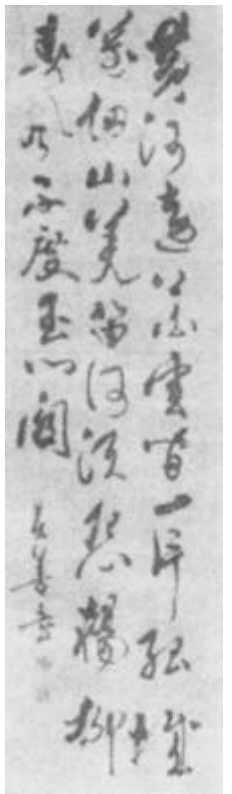 黄河遠上白雲間一片孤城
萬仞山羌笛何須怨楊柳
春風不度玉門關